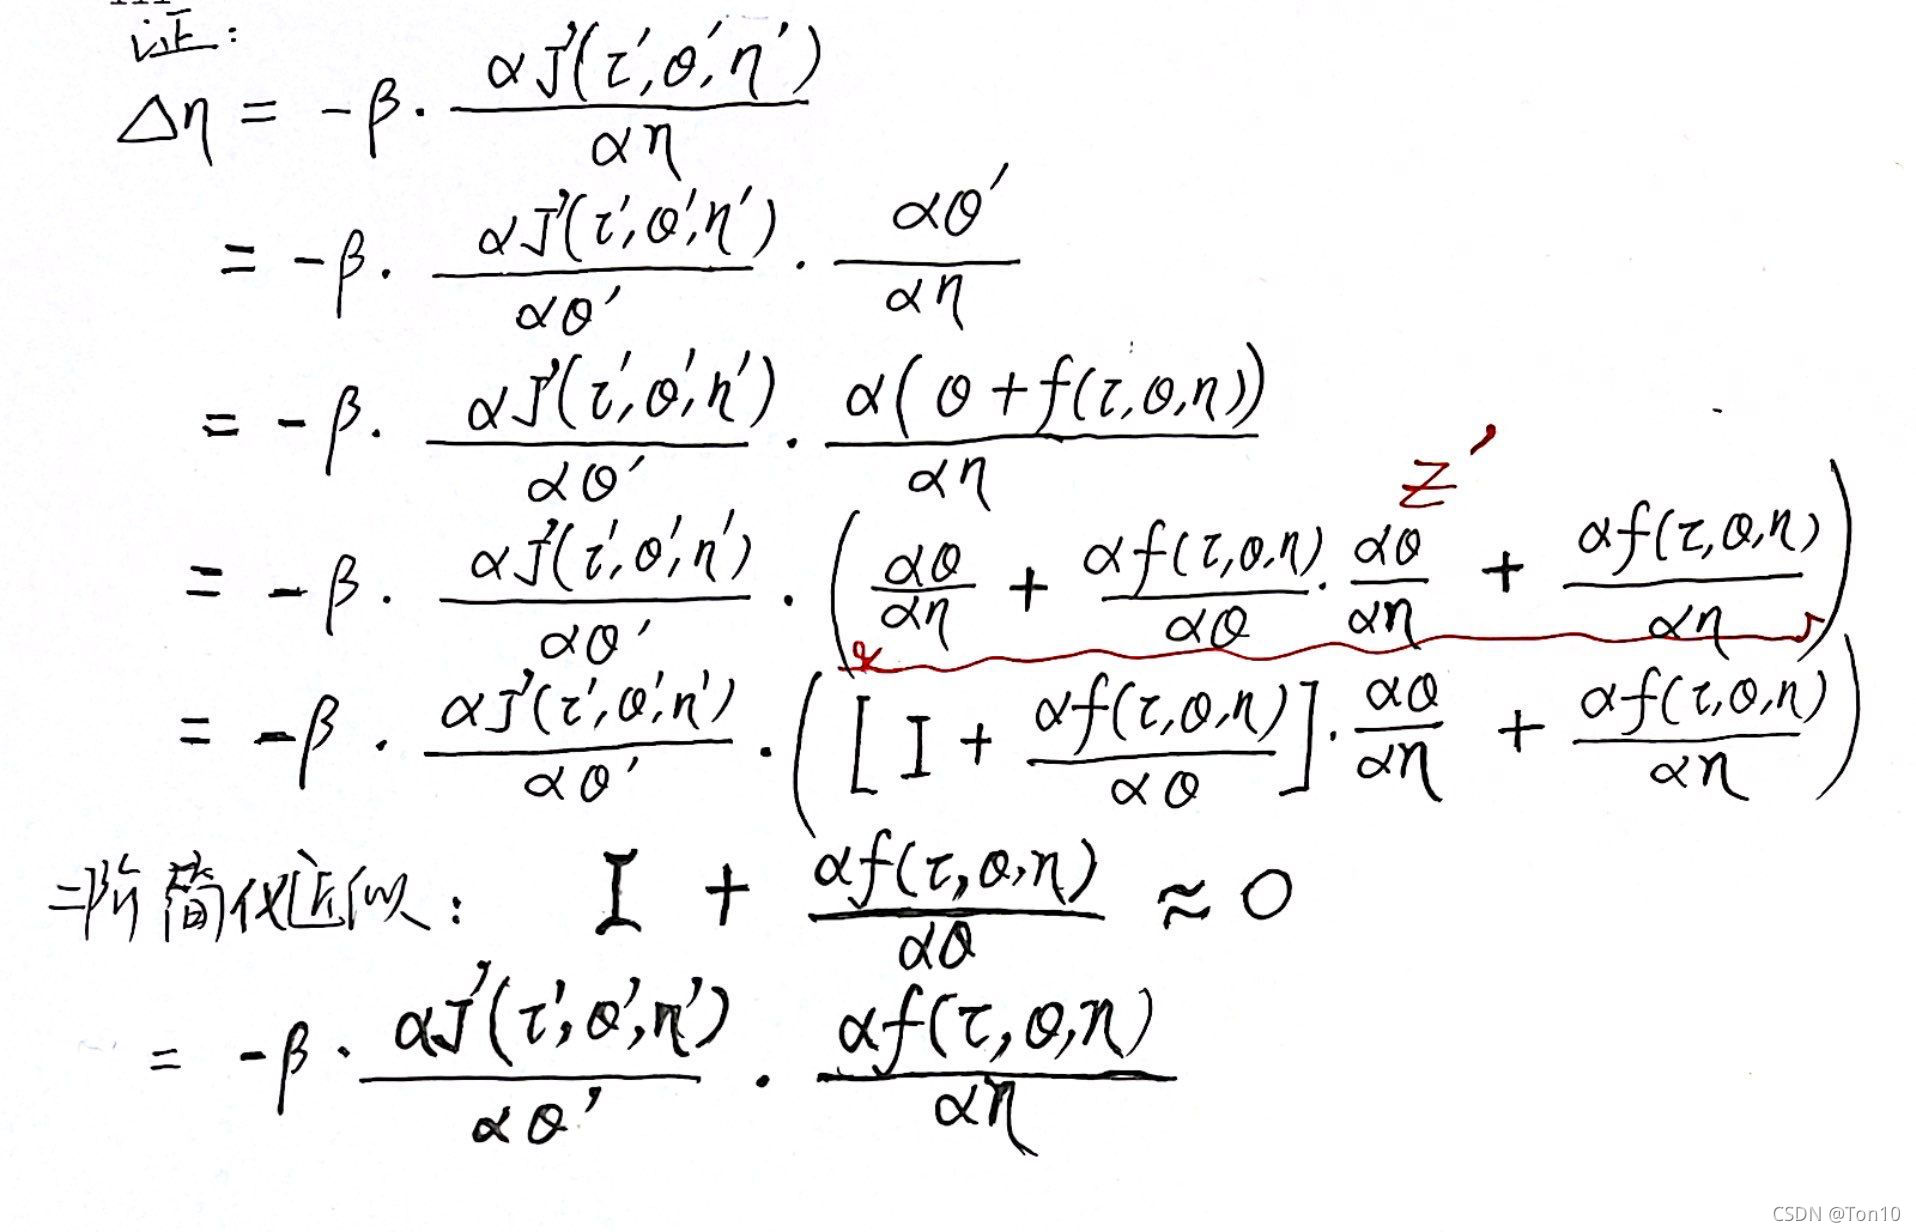 证:
Δη = -β · αJ'(τ', θ', η') / αη
= -β · αJ'(τ', θ', η') / αθ' · αθ' / αη
= -β · αJ'(τ', θ', η') / αθ' · α(θ + f(τ, θ, η)) / αη
z'
= -β · αJ'(τ', θ', η') / αθ' · (αθ / αη + αf(τ, θ, η) / αθ · αθ / αη + αf(τ, θ, η) / αη)
= -β · αJ'(τ', θ', η') / αθ' · ([I + αf(τ, θ, η) / αθ] · αθ / αη + αf(τ, θ, η) / αη)
二阶简化近似: I + αf(τ, θ, η) / αθ ≈ 0
= -β · αJ'(τ', θ', η') / αθ' · αf(τ, θ, η) / αη
CSDN @Ton10